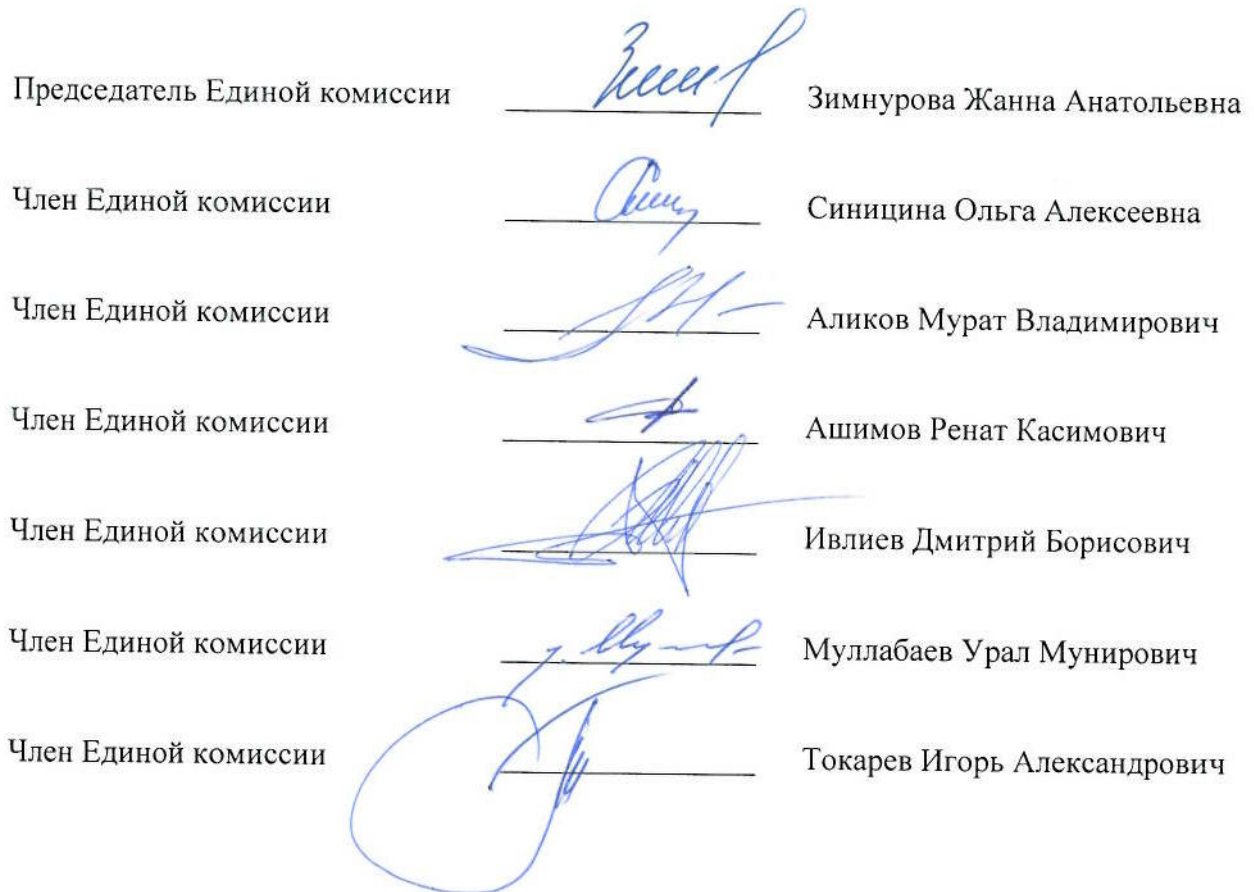 Председатель Единой комиссии Зимнурова Жанна Анатольевна
Член Единой комиссии Синицина Ольга Алексеевна
Член Единой комиссии Аликов Мурат Владимирович
Член Единой комиссии Ашимов Ренат Касимович
Член Единой комиссии Ивлиев Дмитрий Борисович
Член Единой комиссии Муллабаев Урал Мунирович
Член Единой комиссии Токарев Игорь Александрович